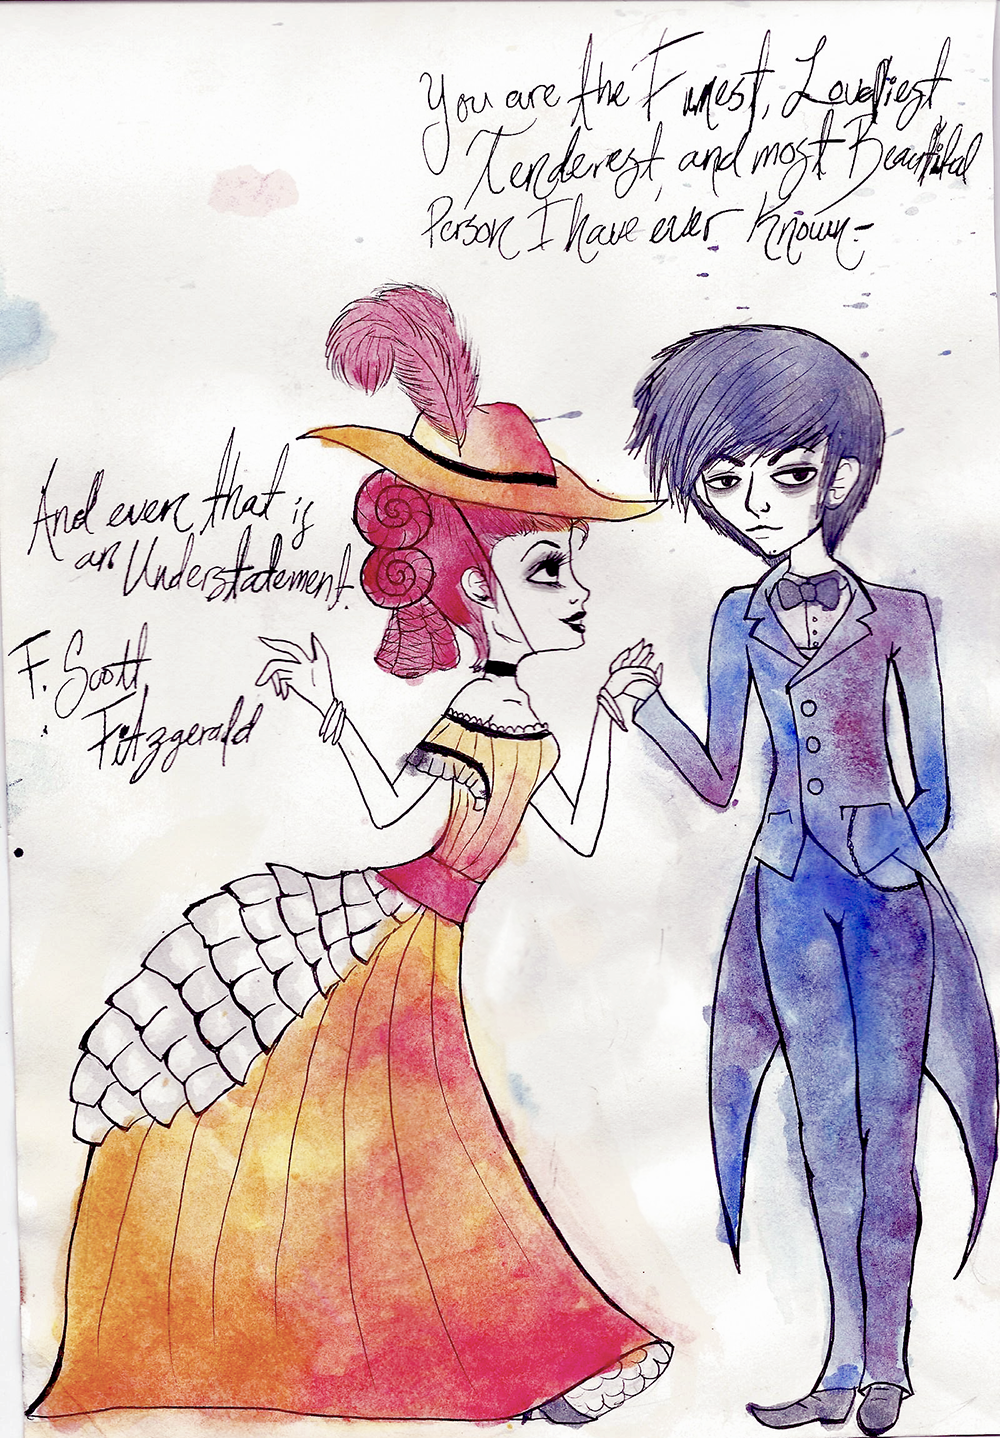 You are the Finest, Loveliest
Tenderest, and most Beautiful
Person I have ever Known–
And even that is
an Understatement.
F. Scott
Fitzgerald